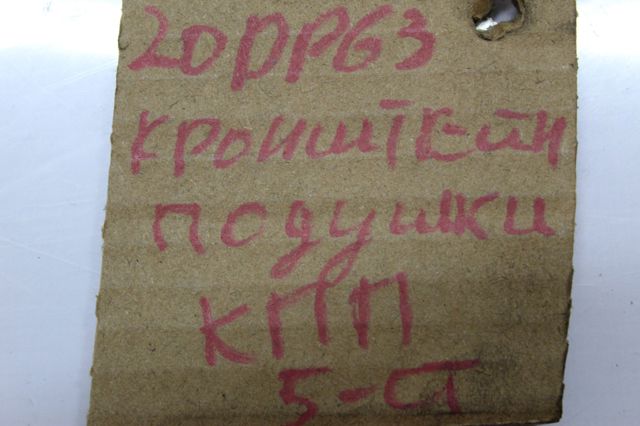 20DP63
КРОНШТЕЙН
ПОДУШКИ
КПП
5-СТ